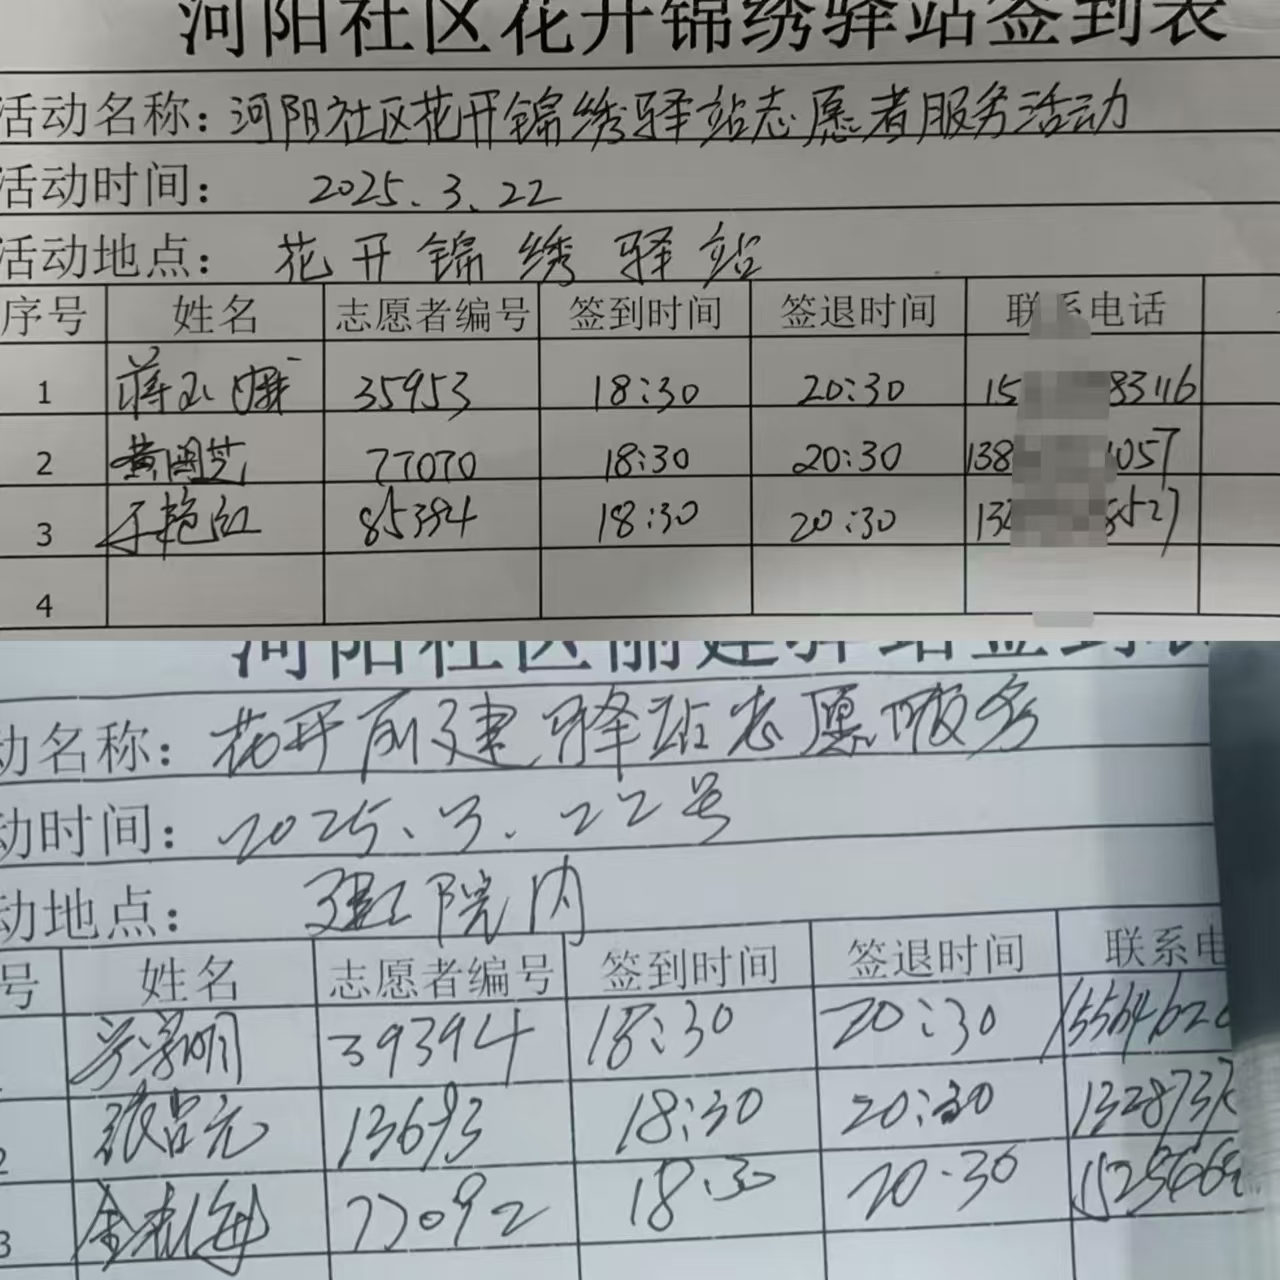 河阳社区花开锦绣驿站签到表
活动名称：河阳社区花开锦绣驿站志愿者服务活动
活动时间： 2025.3.22
活动地点： 花开锦绣驿站
序号 姓名 志愿者编号 签到时间 签退时间 联系电话
1 蒋玉娥 35953 18:30 20:30 15 83116
2 黄闰芝 77070 18:30 20:30 138 1057
3 于艳红 85394 18:30 20:30 132 8527
4
河阳社区丽建驿站签到表
动名称： 花开丽建驿站志愿服务
动时间： 2025.3.22号
动地点： 院内
号 姓名 志愿者编号 签到时间 签退时间 联系电
39394 18:30 20:30 1556462
2 张吕元 13693 18:30 20:30 1328737
3 77092 18:30 20:30 152566